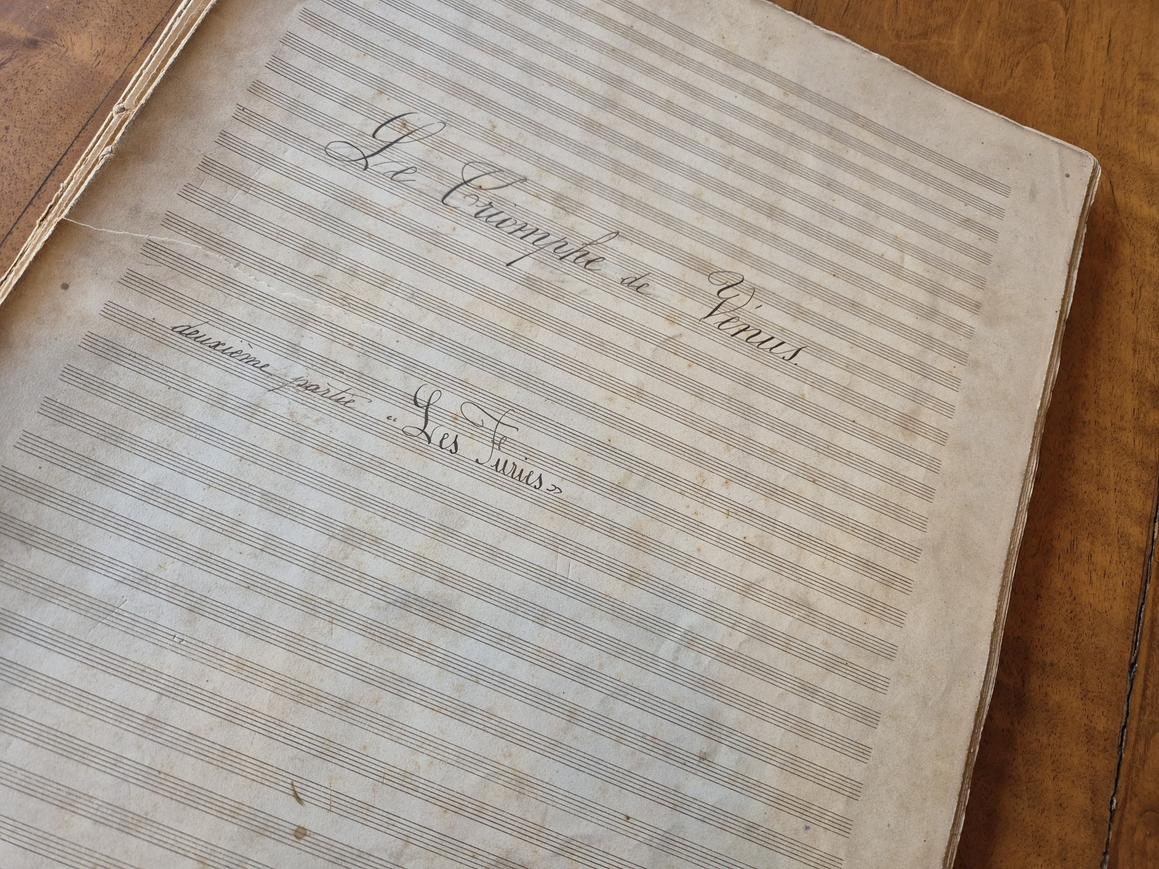 Le Triomphe de Vénus.
deuxième partie "Les Furies»